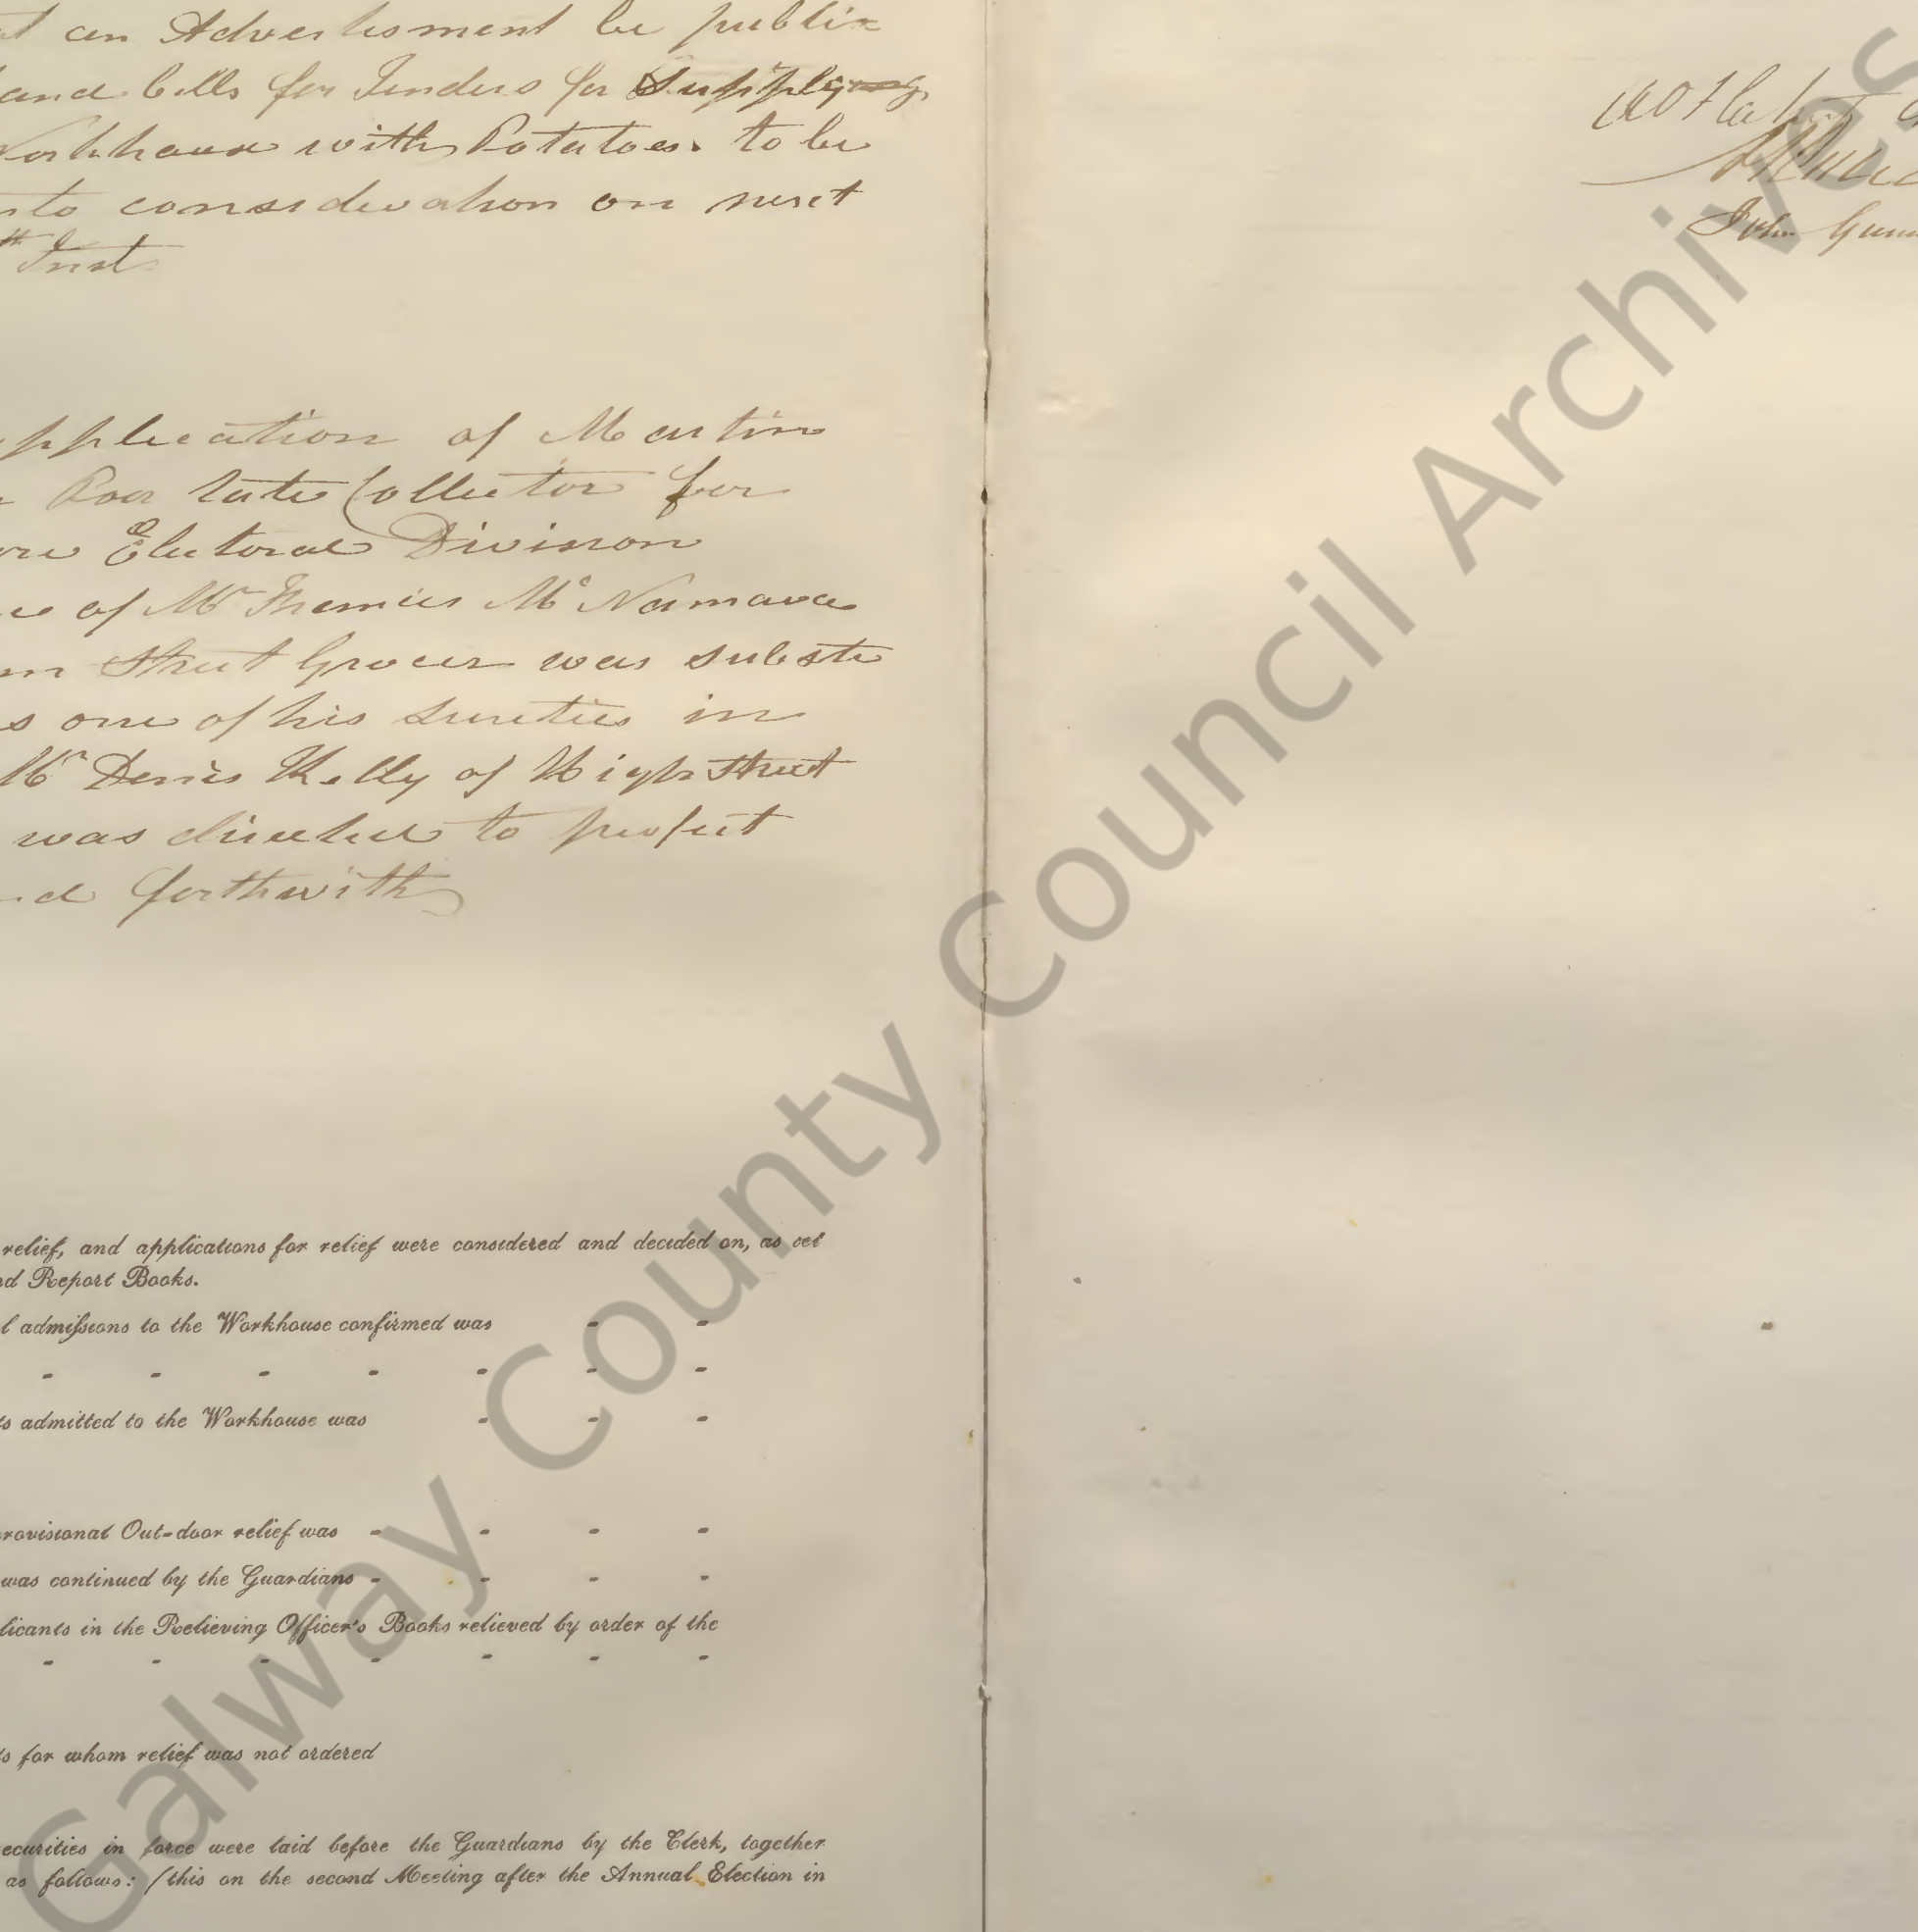 an Advertisment be publis
and bills for Tenders for Supplying
Workhouse with Potatoes to be
into consideration on next
th Inst
application of Martin
Poor rate Collector for
ore Electoral Division
of Mr Thomas McNamara
Street Grocer was substi
s one of his Sureties in
Mr Denis Kelly of High Street
was directed to perfect
forthwith
relief, and applications for relief were considered and decided on, as set
nd Report Books.
l admissions to the Workhouse confirmed was - -
- - - - - - -
ts admitted to the Workhouse was - - -
rovisional Out-door relief was - - - -
was continued by the Guardians - - - -
licants in the Relieving Officer's Books relieved by order of the
- - - - - - -
ts for whom relief was not ordered
ecurities in force were laid before the Guardians by the Clerk, together
as follows: (this on the second Meeting after the Annual Election in
John
Galway County Council Archives